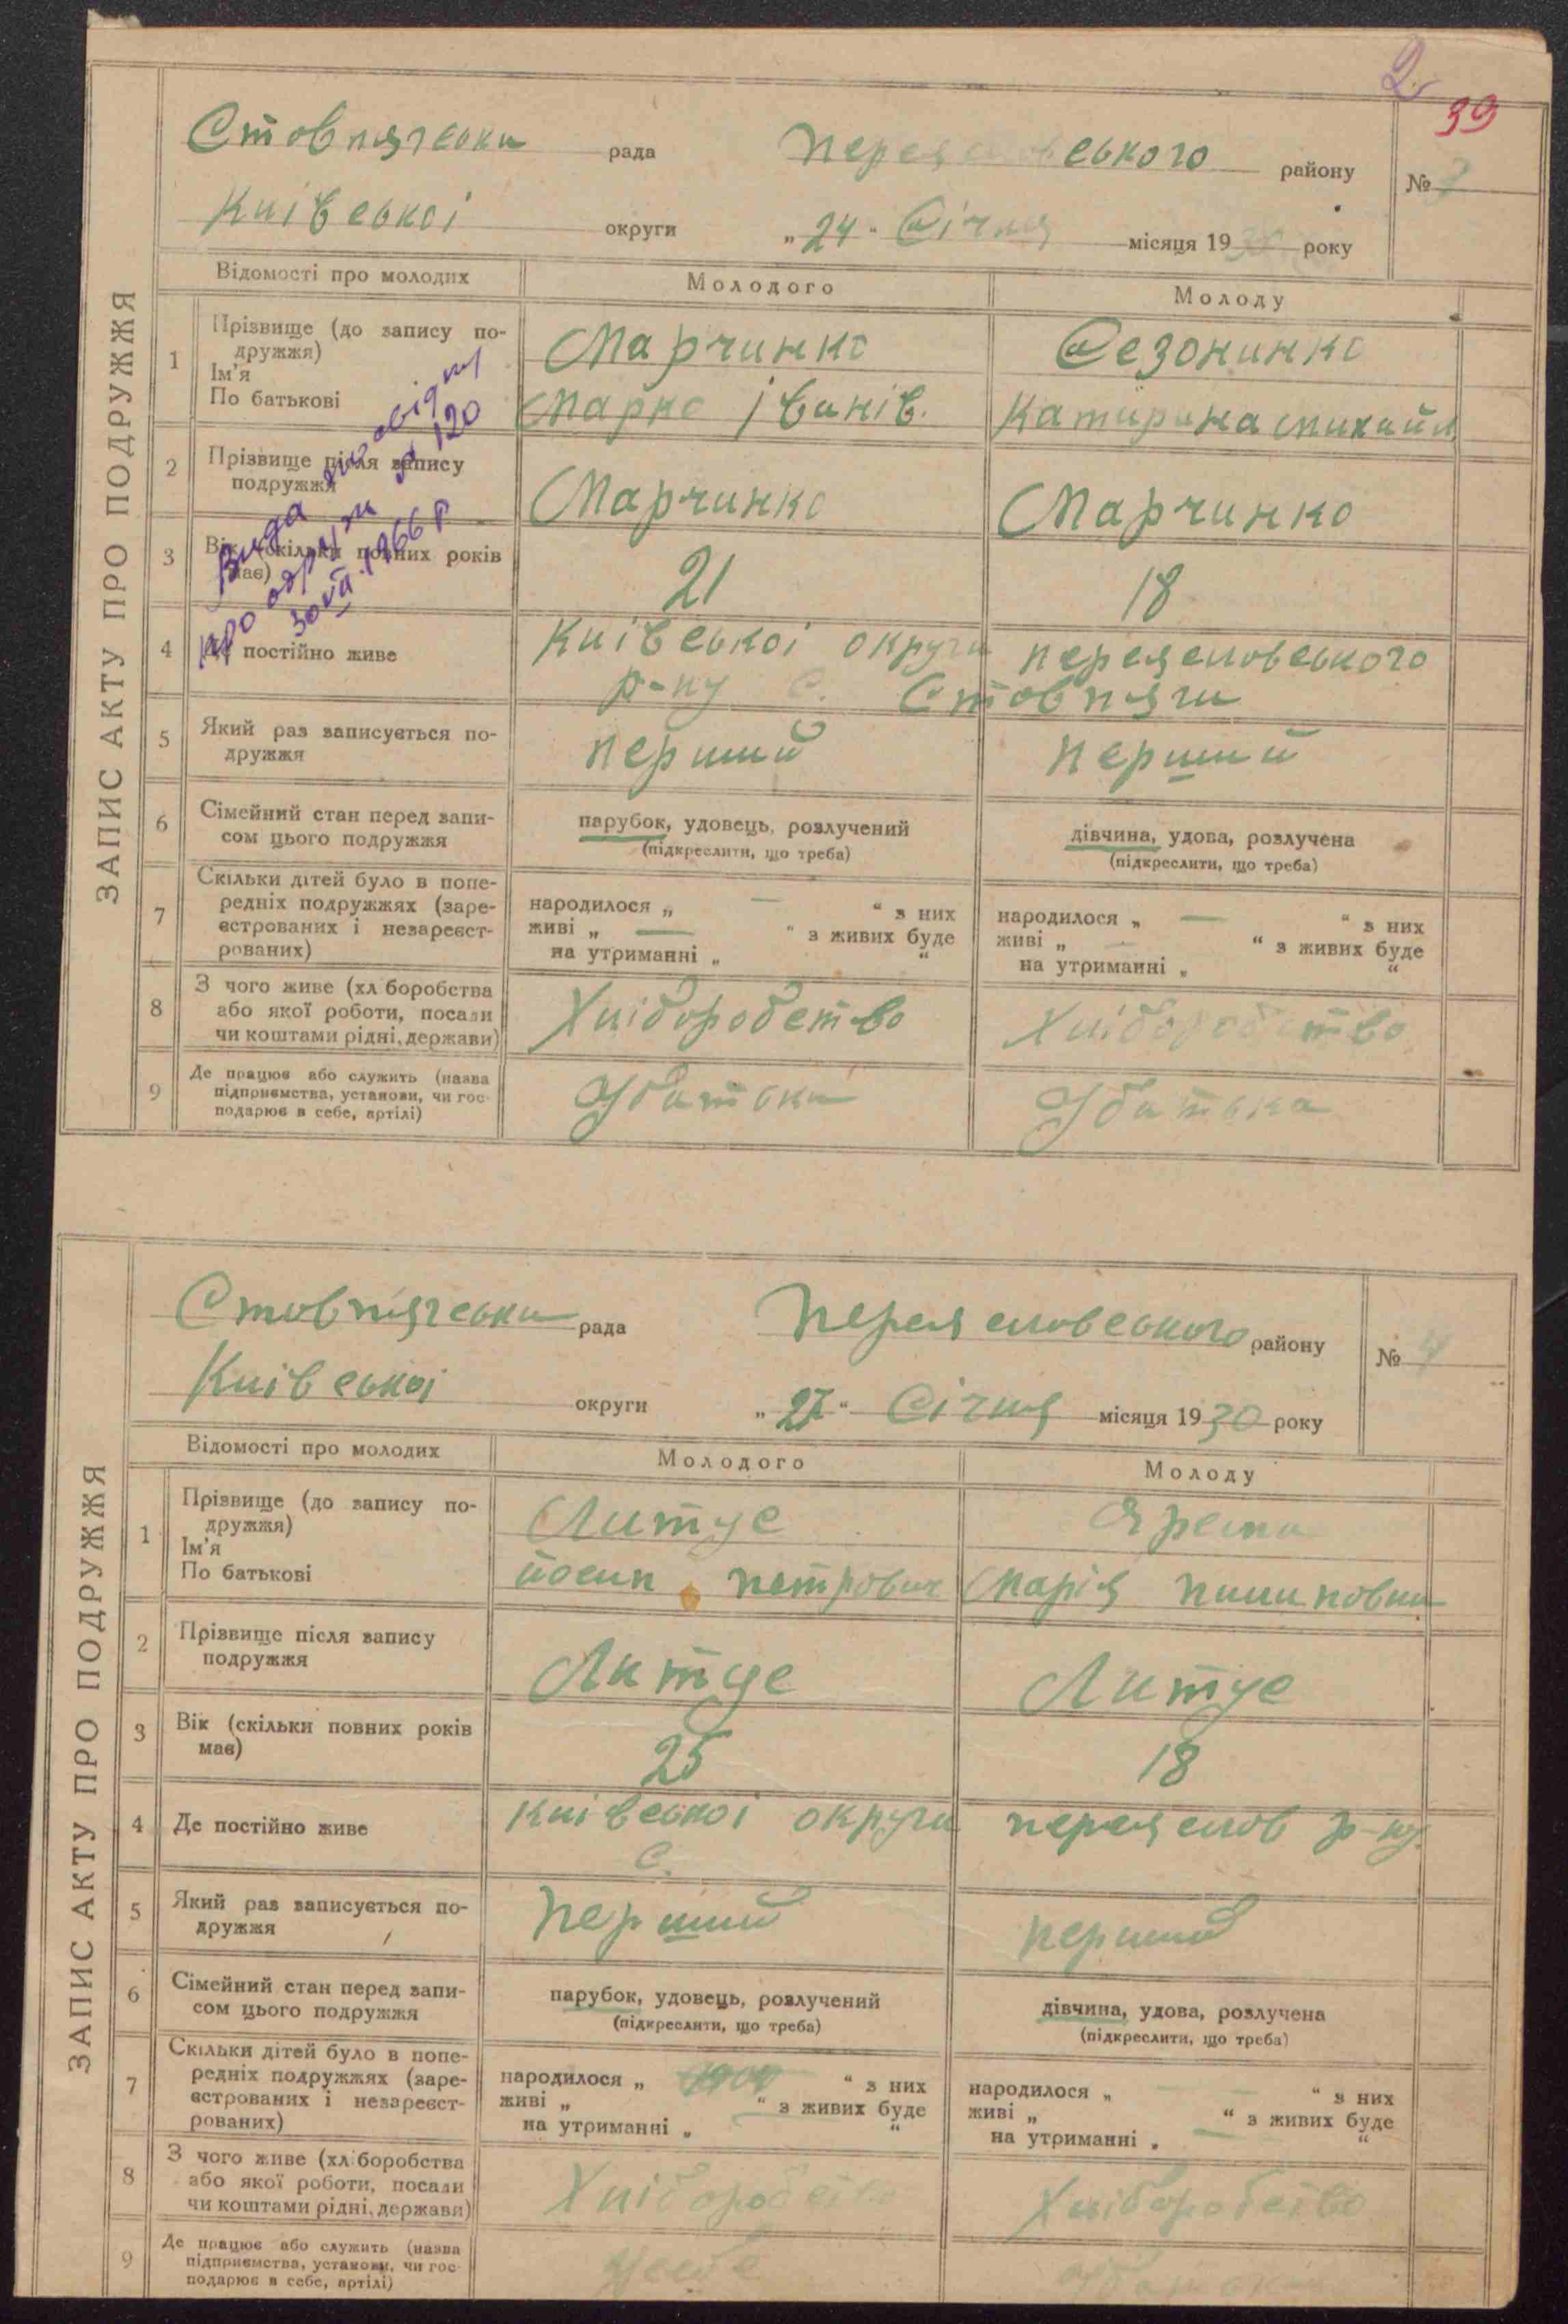 2
39
Стовпязська рада Переяславського району №
Київської округи „24“ Січня місяця 1930 року
ЗАПИС АКТУ ПРО ПОДРУЖЖЯ
Відомості про молодих Молодого Молоду
1 Прізвище (до запису по-
дружжя) Марчинко Сезонинко
Ім'я
По батькові Марко Іванів. Катирина Михайл
2 Прізвище після запису
подружжя Марчинко Марчинко
3 Вік (скільки повних років
має) 21 18
4 Де постійно живе Київської округи переяславського
р-ну с. Стовпяги
Видо довідку
про одруж № 120
30 VII 1966 р
5 Який раз записується по-
дружжя перший перший
6 Сімейний стан перед запи-
сом цього подружжя парубок, удовець, розлучений дівчина, удова, розлучена
(підкреслити, що треба) (підкреслити, що треба)
7 Скільки дітей було в попе-
редніх подружжях (заре-
єстрованих і незареєст-
рованих)
народилося „ — “ з них народилося „ — “ з них
живі „ — “ з живих буде живі „ — “ з живих буде
на утриманні „ “ на утриманні „ “
8 З чого живе (хліборобства
або якої роботи, посади
чи коштами рідні, держави) Хліборобство Хліборобство
9 Де працює або служить (назва
підприємства, установи, чи гос-
подарює в себе, артілі) У батька У батька
Стовпязська рада Переяславського району № 4
Київської округи „27“ Січня місяця 1930 року
ЗАПИС АКТУ ПРО ПОДРУЖЖЯ
Відомості про молодих Молодого Молоду
1 Прізвище (до запису по-
дружжя) Литус Ярема
Ім'я
По батькові Йосип петрович Марія пилиповна
2 Прізвище після запису
подружжя Литус Литус
3 Вік (скільки повних років
має) 25 18
4 Де постійно живе Київської округи переяслов р-ну
с.
5 Який раз записується по-
дружжя перший перший
6 Сімейний стан перед запи-
сом цього подружжя парубок, удовець, розлучений дівчина, удова, розлучена
(підкреслити, що треба) (підкреслити, що треба)
7 Скільки дітей було в попе-
редніх подружжях (заре-
єстрованих і незареєст-
рованих)
народилося „ “ з них народилося „ — “ з них
живі „ “ з живих буде живі „ “ з живих буде
на утриманні „ “ на утриманні „ “
8 З чого живе (хліборобства
або якої роботи, посади
чи коштами рідні, держави) Хліборобство Хліборобство
9 Де працює або служить (назва
підприємства, установи, чи гос-
подарює в себе, артілі) У себе